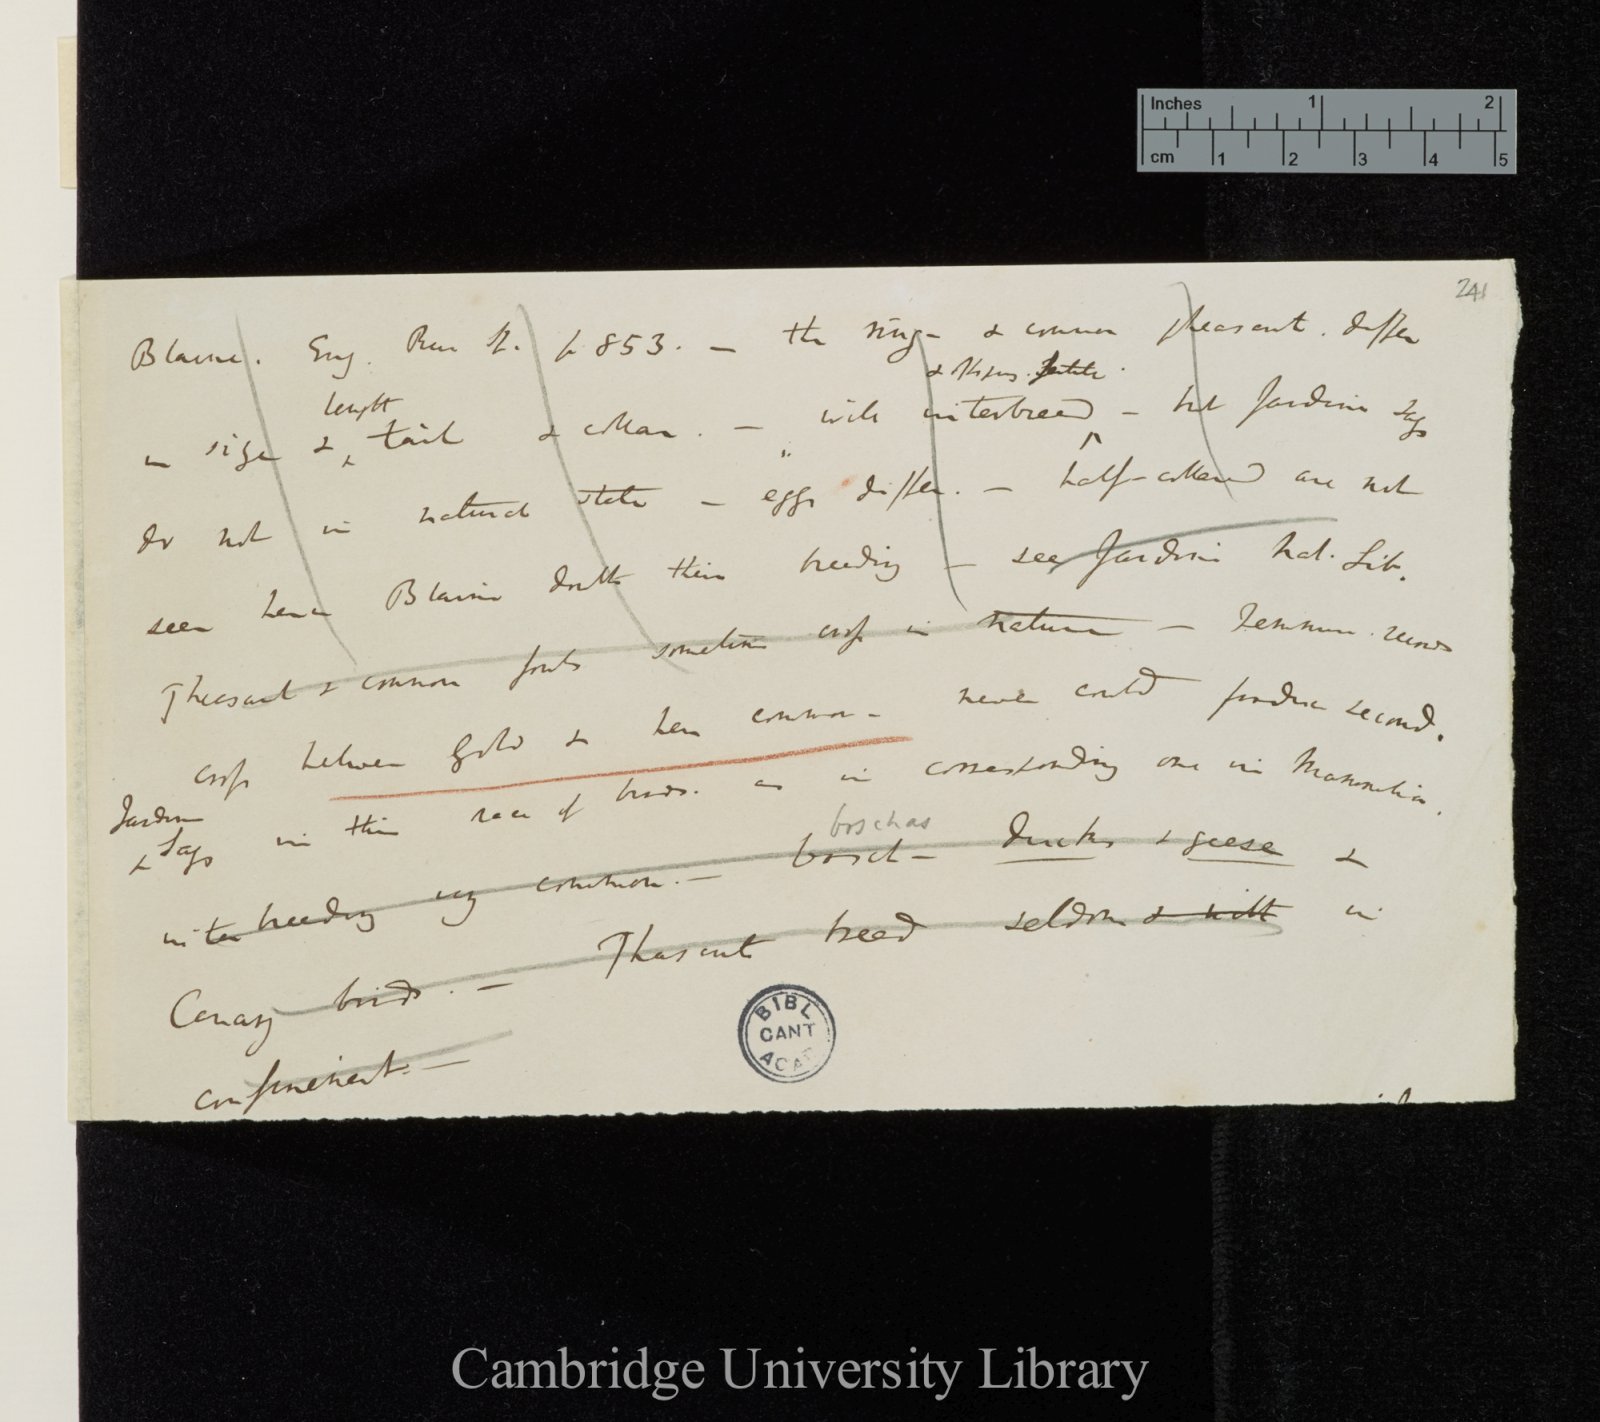 Inches 1 2
cm 1 2 3 4 5
241
Blaine. Ency. Rur Sp. p 853. — the ring- & common pheasant. differ
& offspring fertile.
length
in size & tail & collar. — will interbreed — but Jardine says
do not in natural state — eggs differ. — half-collared are not
seen hence Blaine doubts their breeding — see Jardine Nat. Lib.
Pheasant & common fowls sometimes cross in nature — Temmin. records
cross between Gold & hen common- never could produce second.
Jardine
& says in this race of birds. as in corresponding one in Mammalia.
boschas
interbreeding very common. — bosch- ducks & geese &
Canary birds. — Pheasants breed seldom & with in
confinement. —
BIBL
CANT
ACAD
Cambridge University Library